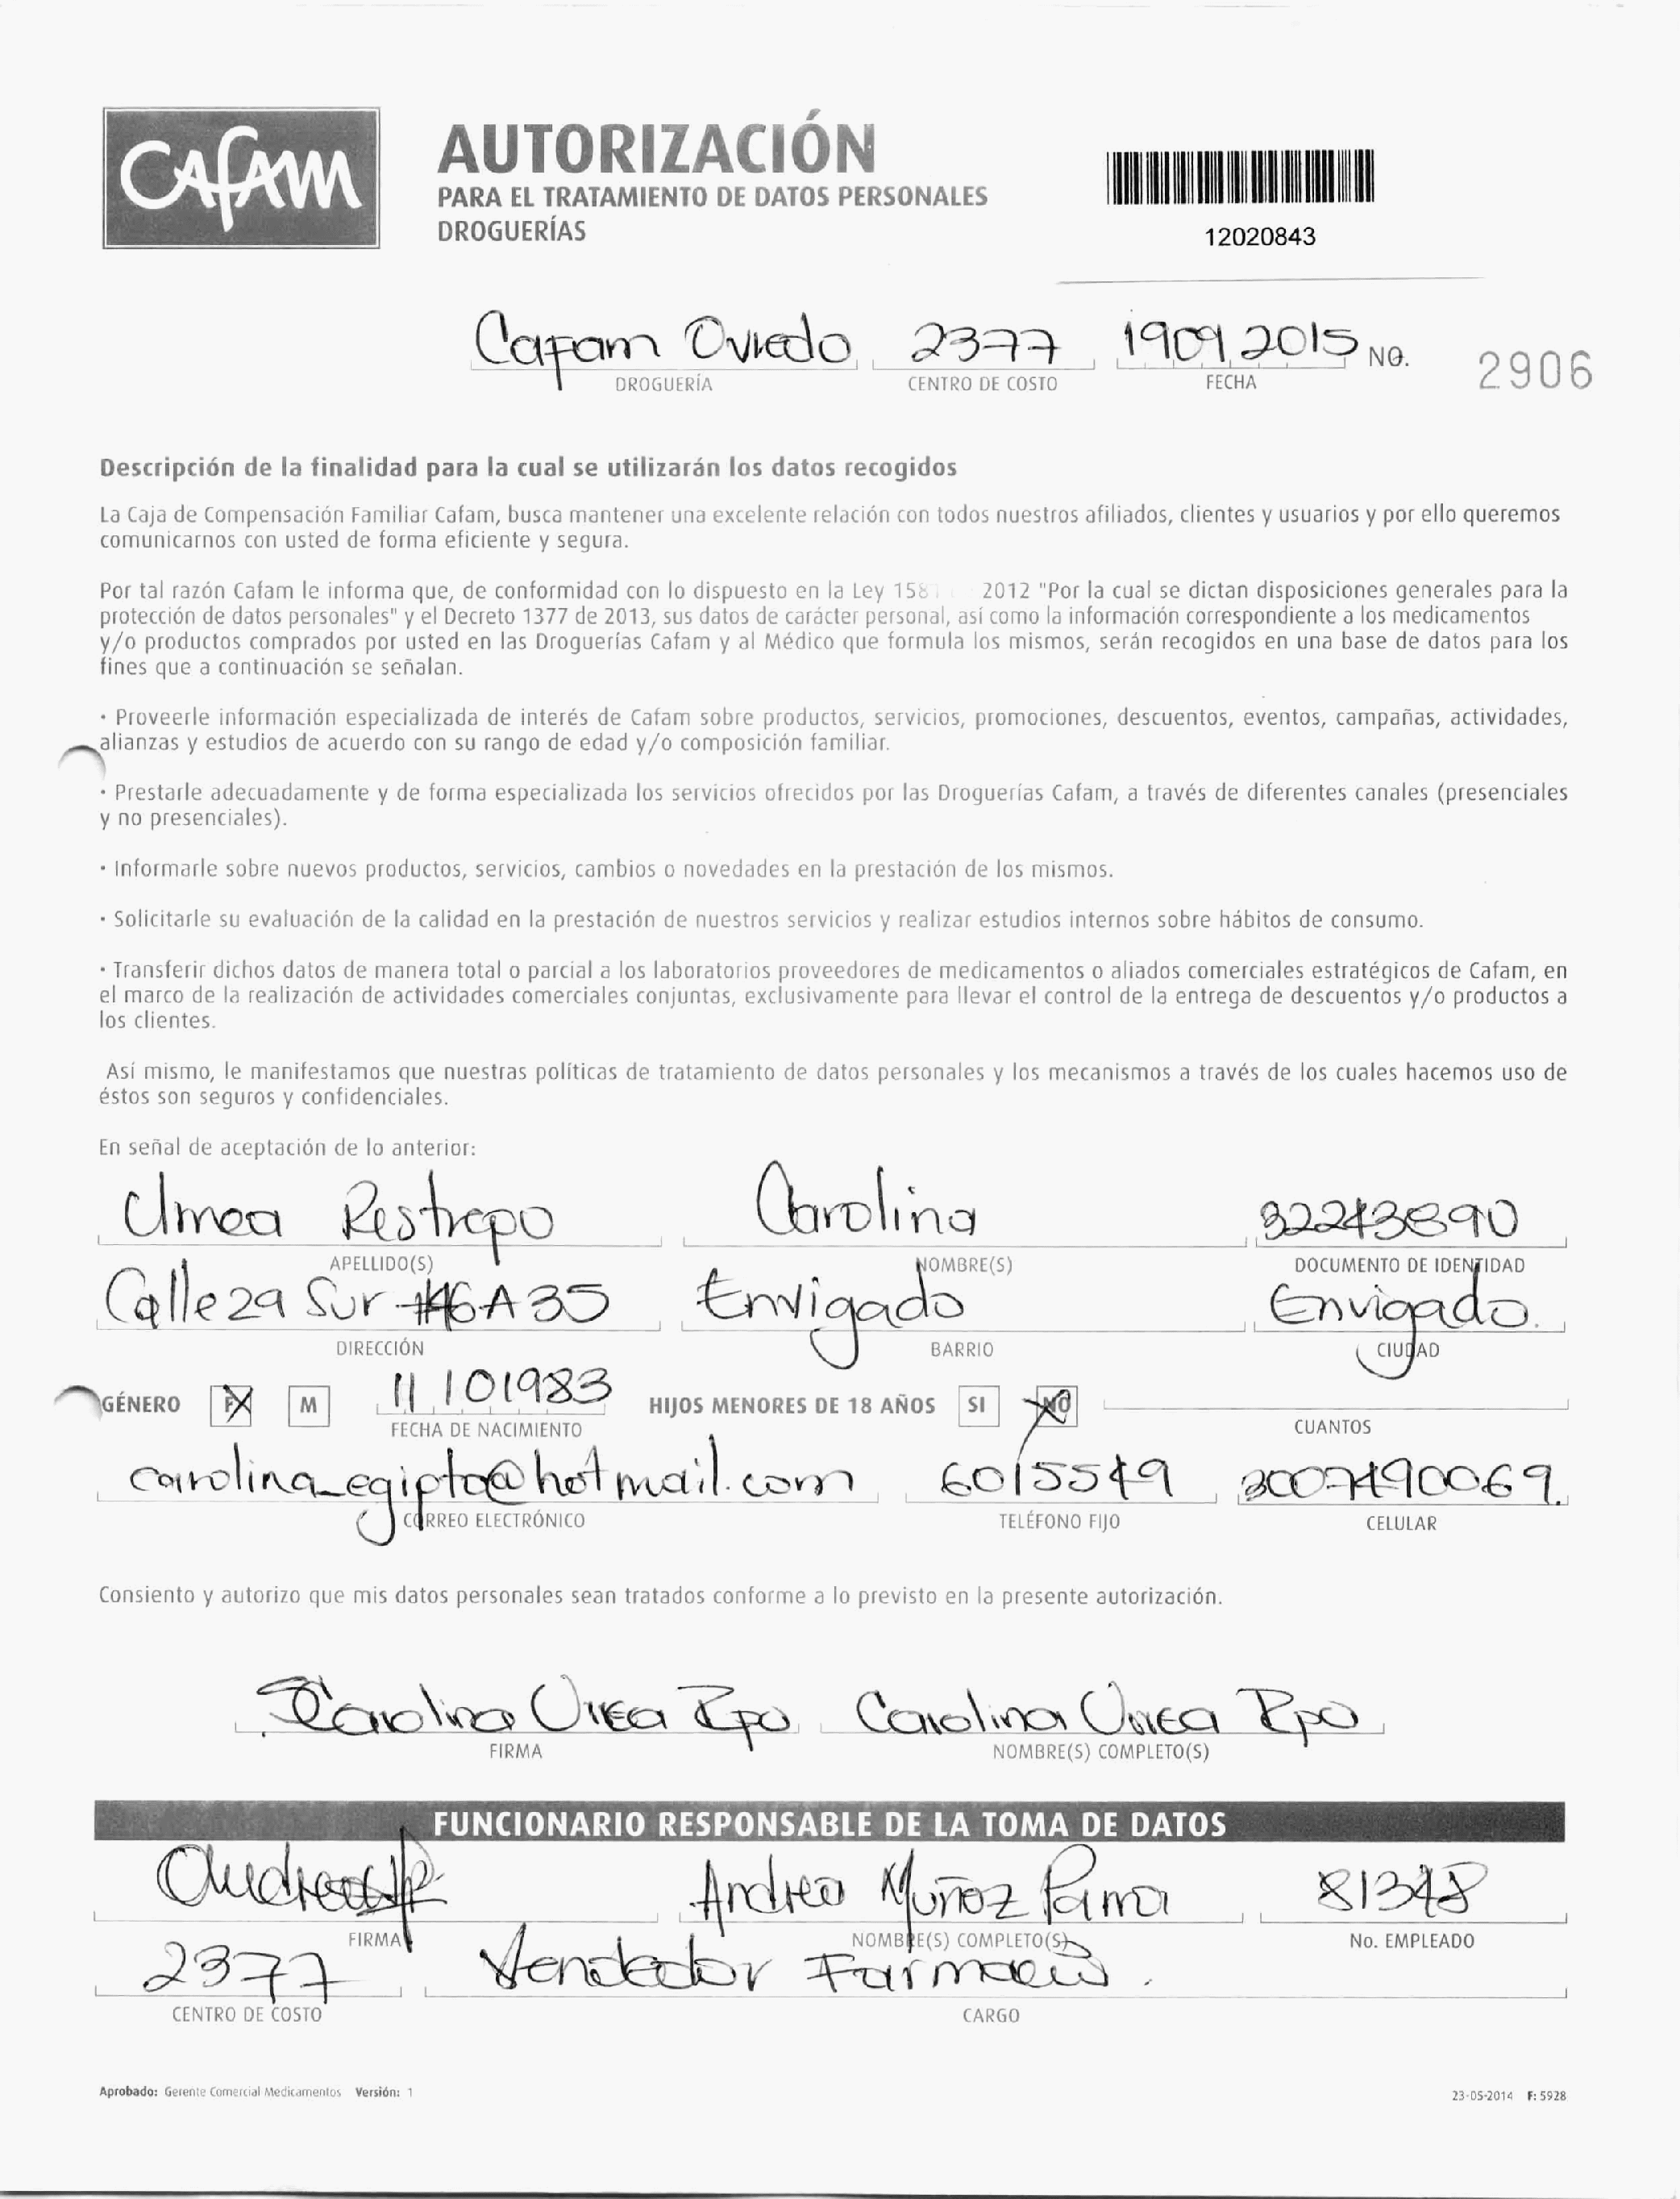 CAFAM
AUTORIZACIÓN
PARA EL TRATAMIENTO DE DATOS PERSONALES
DROGUERÍAS
12020843
Cafam Oviedo 2377 19092015 NO. 2906
DROGUERÍA CENTRO DE COSTO FECHA
Descripción de la finalidad para la cual se utilizarán los datos recogidos
La Caja de Compensación Familiar Cafam, busca mantener una excelente relación con todos nuestros afiliados, clientes y usuarios y por ello queremos
comunicarnos con usted de forma eficiente y segura.
Por tal razón Cafam le informa que, de conformidad con lo dispuesto en la Ley 2012 "Por la cual se dictan disposiciones generales para la
protección de datos personales" y el Decreto 1377 de 2013, sus datos de carácter personal, así como la información correspondiente a los medicamentos
y/o productos comprados por usted en las Droguerías Cafam y al Médico que formula los mismos, serán recogidos en una base de datos para los
fines que a continuación se señalan.
· Proveerle información especializada de interés de Cafam sobre productos, servicios, promociones, descuentos, eventos, campañas, actividades,
alianzas y estudios de acuerdo con su rango de edad y/o composición familiar.
· Prestarle adecuadamente y de forma especializada los servicios ofrecidos por las Droguerías Cafam, a través de diferentes canales (presenciales
y no presenciales).
· Informarle sobre nuevos productos, servicios, cambios o novedades en la prestación de los mismos.
· Solicitarle su evaluación de la calidad en la prestación de nuestros servicios y realizar estudios internos sobre hábitos de consumo.
· Transferir dichos datos de manera total o parcial a los laboratorios proveedores de medicamentos o aliados comerciales estratégicos de Cafam, en
el marco de la realización de actividades comerciales conjuntas, exclusivamente para llevar el control de la entrega de descuentos y/o productos a
los clientes.
Así mismo, le manifestamos que nuestras políticas de tratamiento de datos personales y los mecanismos a través de los cuales hacemos uso de
éstos son seguros y confidenciales.
En señal de aceptación de lo anterior:
Restrepo Carolina 32243890
APELLIDO(S) NOMBRE(S) DOCUMENTO DE IDENTIDAD
Calle 29 Sur #46A35 Envigado Envigado.
DIRECCIÓN BARRIO CIUDAD
GÉNERO F M 11101983 HIJOS MENORES DE 18 AÑOS SI NO
FECHA DE NACIMIENTO CUANTOS
carolina_egipto@hotmail.com 6015549 3007490069.
CORREO ELECTRÓNICO TELÉFONO FIJO CELULAR
Consiento y autorizo que mis datos personales sean tratados conforme a lo previsto en la presente autorización.
Carolina Urrea Rpo Carolina Urrea Rpo
FIRMA NOMBRE(S) COMPLETO(S)
FUNCIONARIO RESPONSABLE DE LA TOMA DE DATOS
Andrea Muñoz Parra 81348
FIRMA NOMBRE(S) COMPLETO(S) No. EMPLEADO
2377 Vendedor Farmacia.
CENTRO DE COSTO CARGO
Aprobado: Gerente Comercial Medicamentos Versión: 1 23-05-2014 F: 5928